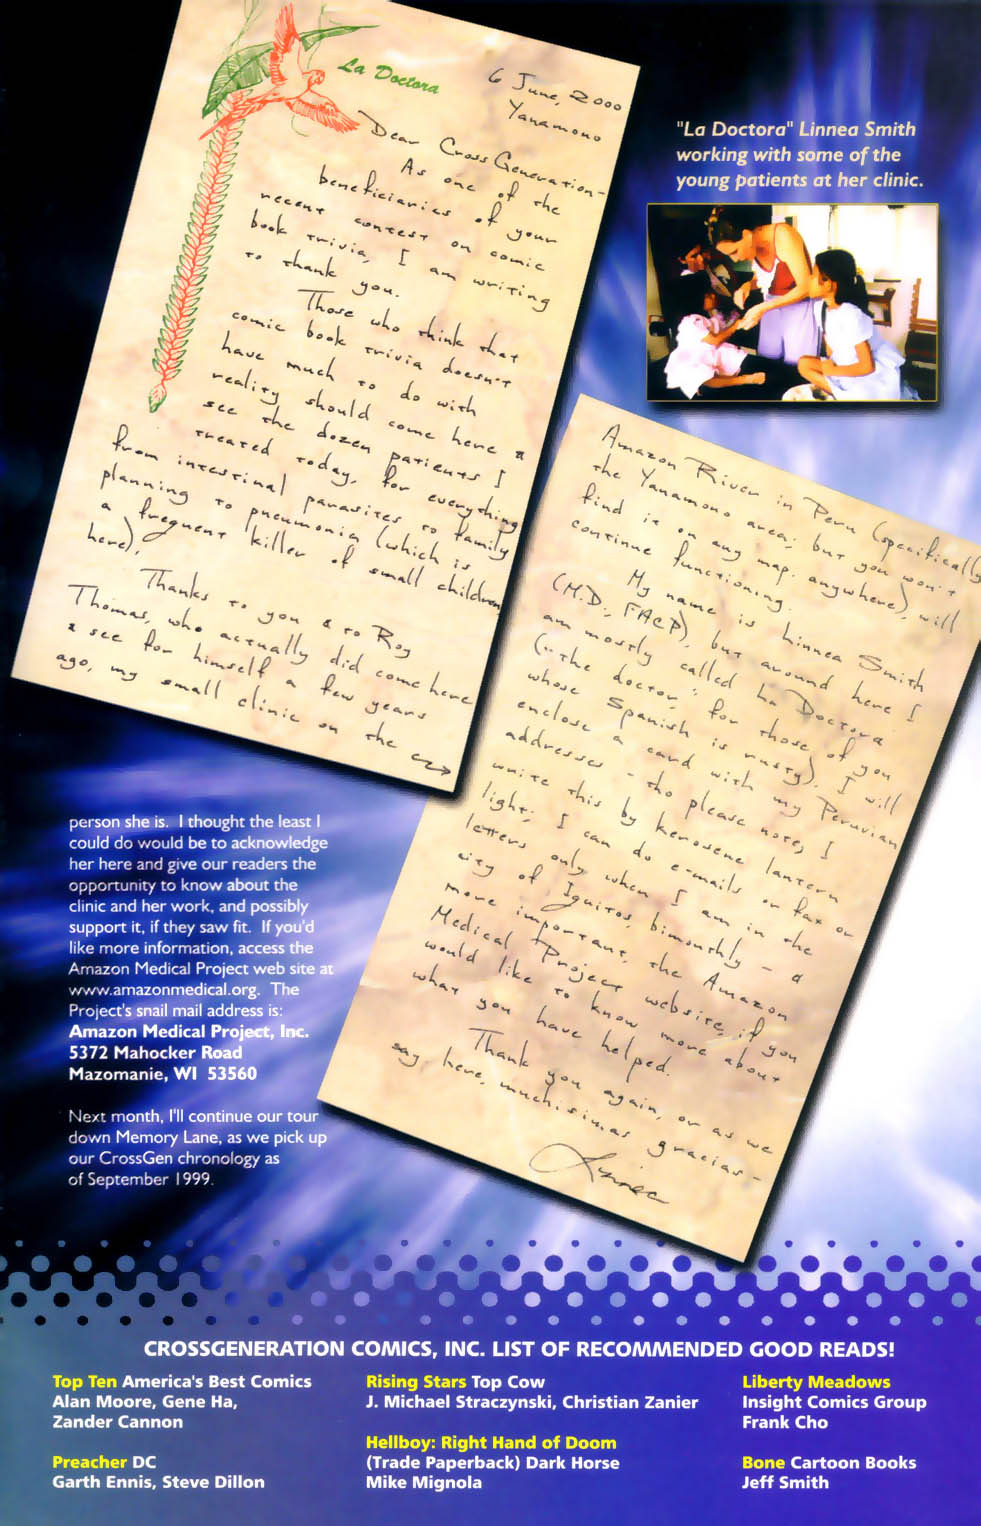 La Doctora
6 June, 2000
Yanamono
Dear CrossGeneration-
As one of the
beneficiaries of your
recent contest on comic
book trivia, I am writing
to thank you.
Those who think that
comic book trivia doesn't
have much to do with
reality should come here &
see the dozen patients I
treated today, for everything
from intestinal parasites to family
planning to pneumonia (which is
a frequent killer of small children
here).
Thanks to you & to Roy
Thomas, who actually did come here
& see for himself a few years
ago, my small clinic on the
"La Doctora" Linnea Smith
working with some of the
young patients at her clinic.
Amazon River in Peru (specifically
the Yanamono area; but you won't
find it on any map, anywhere), will
continue functioning.
My name is Linnea Smith
(M.D., FACP), but around here I
am mostly called La Doctora
("the doctor," for those of you
whose Spanish is rusty). I will
enclose a card with my Peruvian
addresses - tho please note, I
write this by kerosene lantern
light; I can do e-mails or fax or
letters only when I am in the
city of Iquitos, bimonthly - &
more important, the Amazon
Medical Project website, if you
would like to know more about
what you have helped.
Thank you again, or as we
say here, muchisimas gracias -
Linnea
person she is. I thought the least I
could do would be to acknowledge
her here and give our readers the
opportunity to know about the
clinic and her work, and possibly
support it, if they saw fit. If you'd
like more information, access the
Amazon Medical Project web site at
www.amazonmedical.org. The
Project's snail mail address is:
Amazon Medical Project, Inc.
5372 Mahocker Road
Mazomanie, WI 53560
Next month, I'll continue our tour
down Memory Lane, as we pick up
our CrossGen chronology as
of September 1999.
CROSSGENERATION COMICS, INC. LIST OF RECOMMENDED GOOD READS!
Top Ten America's Best Comics
Alan Moore, Gene Ha,
Zander Cannon
Preacher DC
Garth Ennis, Steve Dillon
Rising Stars Top Cow
J. Michael Straczynski, Christian Zanier
Hellboy: Right Hand of Doom
(Trade Paperback) Dark Horse
Mike Mignola
Liberty Meadows
Insight Comics Group
Frank Cho
Bone Cartoon Books
Jeff Smith